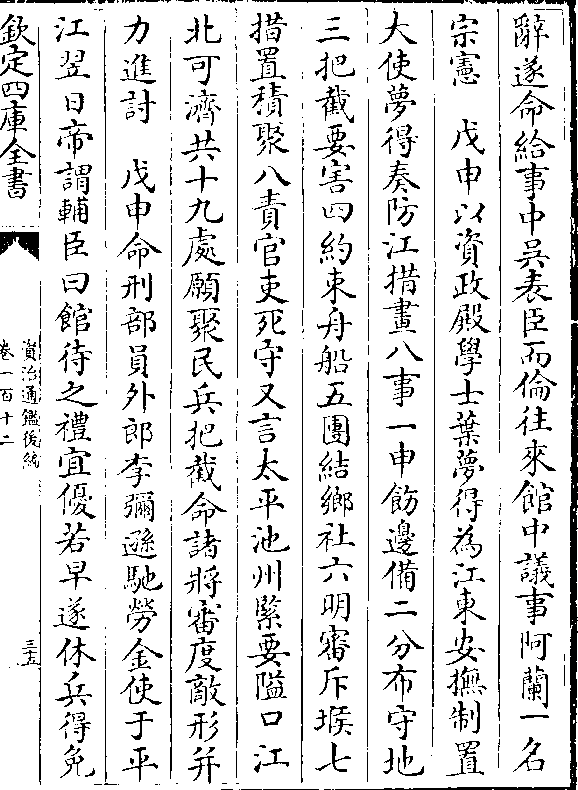 辭遂命給事中吳表臣而倫往來館中議事阿蘭一名
宗憲　戊申以資政殿學士葉夢得為江東安撫制置
大使夢得奏防江措畫八事一申飭邊備二分布守地
三把截要害四約束舟船五團結鄉社六明審斥堠七
措置積聚八責官吏死守又言太平池州緊要隘口江
北可濟共十九處願聚民兵把截命諸將審度敵形并
力進討　戊申命刑部員外郎李彌遜馳勞金使于平
江翌日帝謂輔臣曰館待之禮宜優若早遂休兵得免
欽定四庫全書
資治通鑑後編
卷一百十二
三五